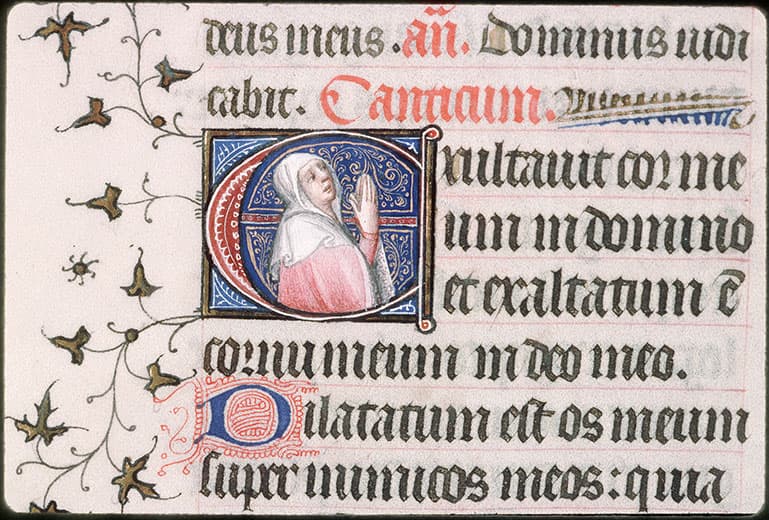 deus meus. añ. Dominus iudi
cabit. Canticum.
Exultauit cor me
um in domino
et exaltatum ē
cornu meum in deo meo.
Dilatatum est os meum
super inimicos meos: quia